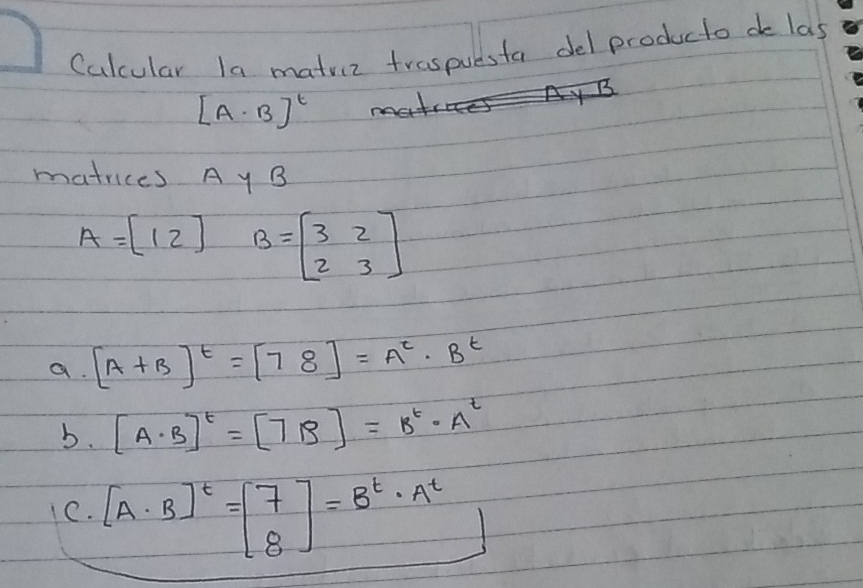 Calcular la matriz traspuesta del producto de las
[A · B]ᵗ matrices A y B
matrices A y B
A = [1 2] B = [3 2
2 3]
a. [A + B]ᵗ = [7 8] = Aᵗ · Bᵗ
b. [A · B]ᵗ = [7 8] = Bᵗ · Aᵗ
c. [A · B]ᵗ = [7
8] = Bᵗ · Aᵗ